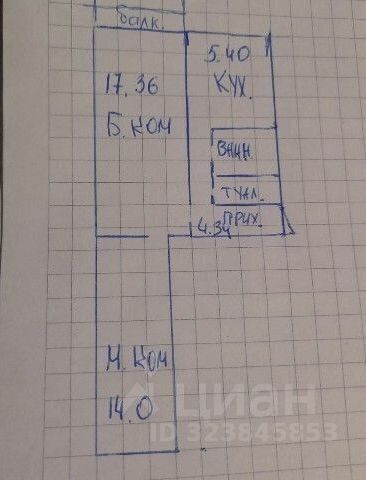 балк.
5.40
КУХ.
17.36
Б.КОМ
ВАНН.
ТУАЛ.
ПРИХ.
4.34
М.КОМ
14.0
ЦИАН
ID 323845853